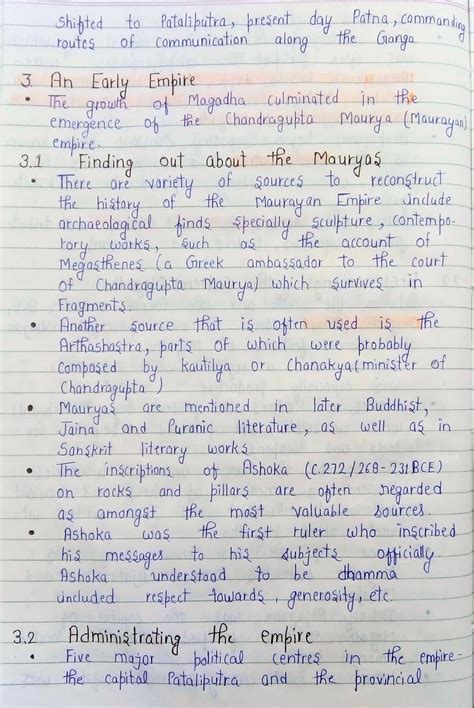 shifted to Pataliputra, present day Patna, commanding
routes of communication along the Ganga
3. An Early Empire
• The growth of Magadha culminated in the
emergence of the Chandragupta Maurya (Maurayan)
empire.
3.1 Finding out about the Mauryas
• There are variety of sources to reconstruct
the history of the Maurayan Empire include
archaeological finds specially sculpture, contempo-
rary works, such as the account of
Megasthenes (a Greek ambassador to the court
of Chandragupta Maurya) which survives in
Fragments.
• Another source that is often used is the
Arthashastra, parts of which were probably
composed by kautilya or Chanakya (minister of
Chandragupta)
• Mauryas are mentioned in later Buddhist,
Jaina and Puranic literature, as well as in
Sanskrit literary works
• The inscriptions of Ashoka (C.272/268-231BCE)
on rocks and pillars are often regarded
as amongst the most valuable sources
• Ashoka was the first ruler who inscribed
his messages to his subjects officially
Ashoka understood to be dhamma
included respect towards, generosity, etc
3.2 Administrating the empire
• Five major political centres in the empire-
the capital Pataliputra and the provincial